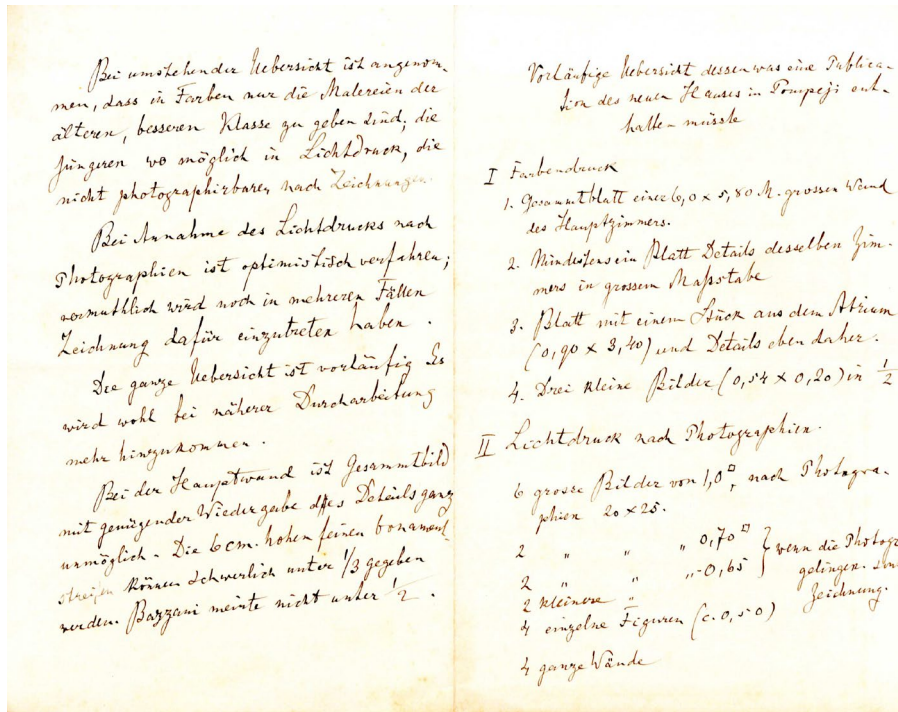 Bei umstehender Uebersicht ist angenom-
men, dass in Farben nur die Malereien der
älteren, besseren Klasse zu geben sind; die
jüngeren wo möglich in Lichtdruck, die
nicht photographirbaren nach Zeichnungen.
Bei Annahme des Lichtdrucks nach
Photographien ist optimistisch verfahren;
vermuthlich wird noch in mehreren Fällen
Zeichnung dafür einzutreten haben.
Die ganze Uebersicht ist vorläufig Es
wird wohl bei näherer Durcharbeitung
mehr hinzukommen.
Bei der Hauptwand ist Gesammtbild
mit genügender Wiedergabe des Details ganz
unmöglich - Die 6 cm. hohen feinen
streifen können schwerlich unter 1/3 gegeben
werden. Bazzani meinte nicht unter 1/2.
Vorläufige Uebersicht dessen was eine Publica-
tion des neuen Hauses in Pompeji ent-
halten müsste
I Farbendruck
1. Gesammtblatt einer 6,0 x 5,80 M. grossen Wand
des Hauptzimmers.
2. Mindestens ein Blatt Details desselben Zim-
mers in grossem Maßstabe
3. Blatt mit einem Stück aus dem Atrium
(0,90 x 3,40) und Details eben daher.
4. Drei kleine Bilder (0,54 x 0,20) in 1/2
II Lichtdruck nach Photographien.
6 grosse Bilder von 1,0□, nach Photogra-
phien 20 x 25.
2 " " " 0,70□ } wenn die Photogr
2 " " " 0,65 gelingen.
2 kleinere " Zeichnung.
4 einzelne Figuren (c. 0,50)
4 ganze Wände